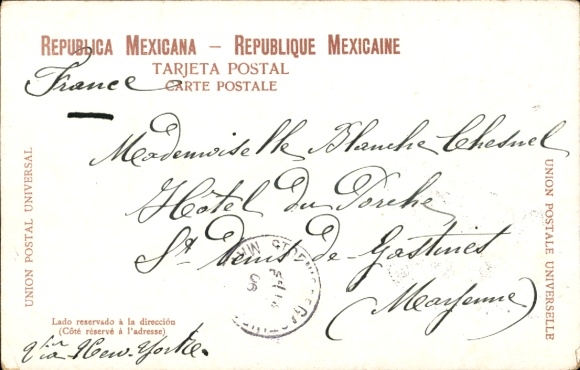 REPUBLICA MEXICANA — REPUBLIQUE MEXICAINE
TARJETA POSTAL
CARTE POSTALE
France
UNION POSTAL UNIVERSAL
Mademoiselle Blanche Chesnel
Hôtel du Porche
St Denis de Gastines
(Mayenne)
UNION POSTALE UNIVERSELLE
ST DENIS DE GASTINES
06
Lado reservado à la dirección
(Côté réservé à l'adresse)
Via New-York.